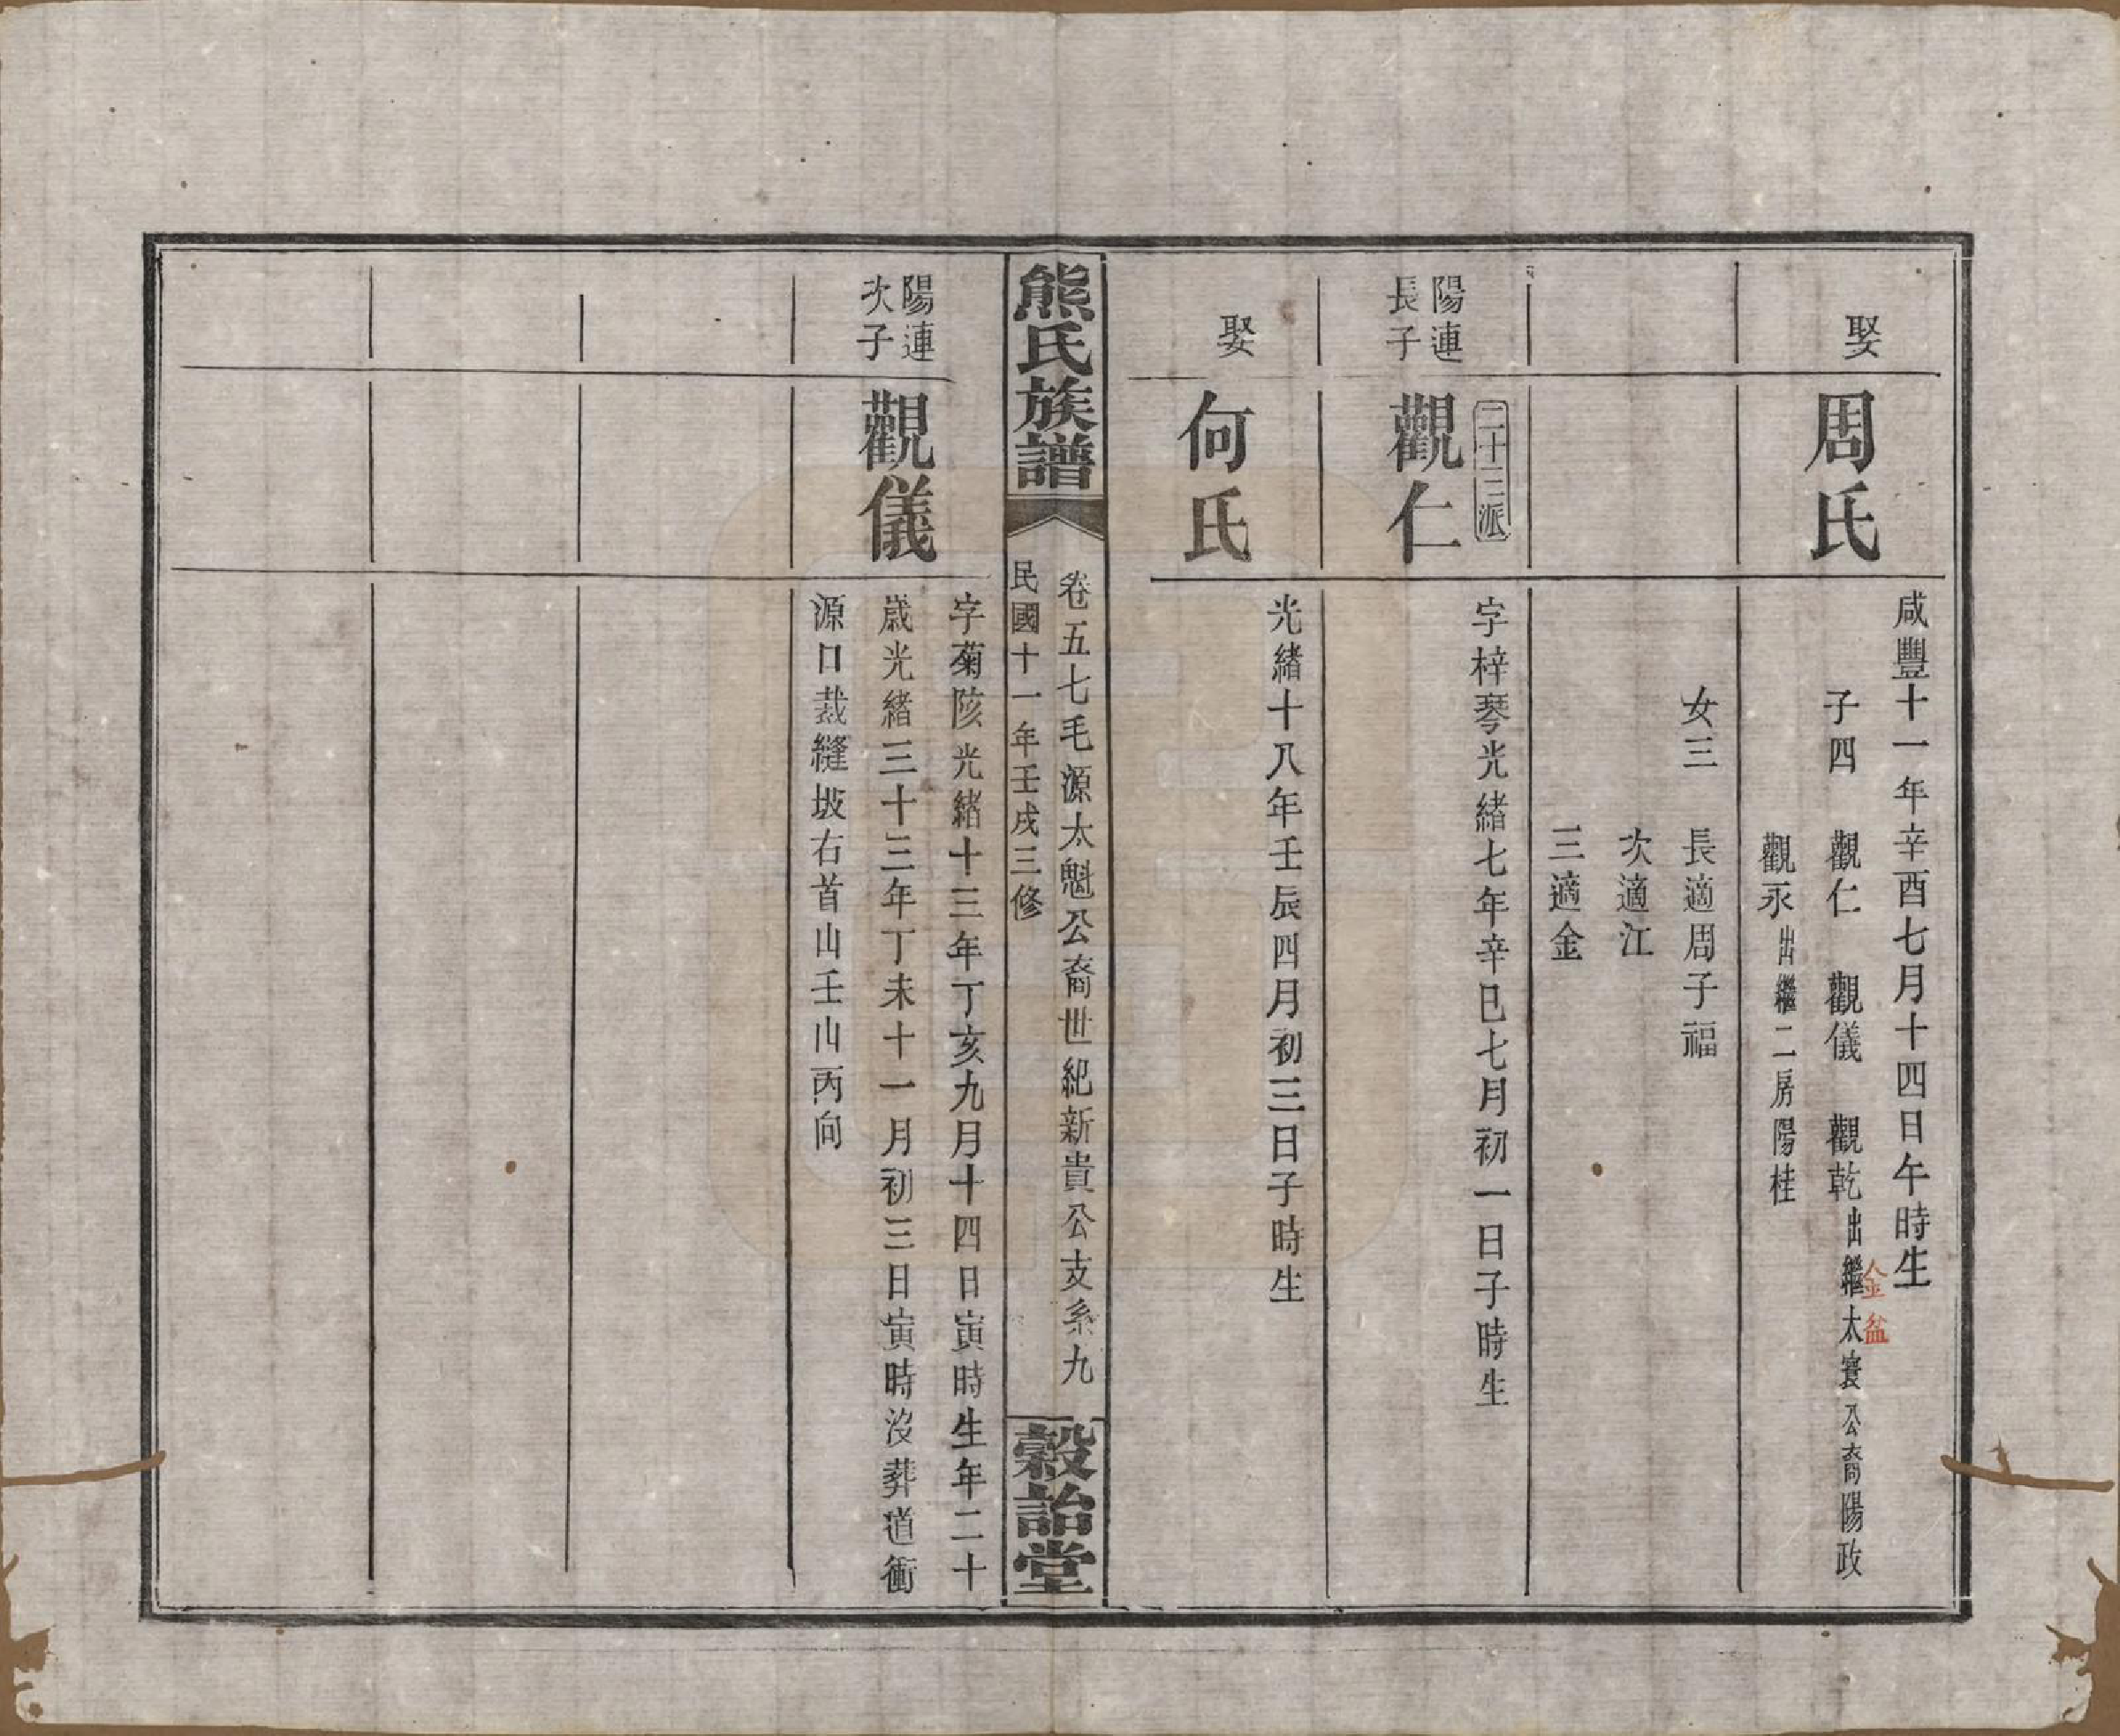 娶
周氏
咸豐十一年辛酉七月十四日午時生
子四 觀仁 觀儀 觀乾出繼太寰公裔陽政
金盆
觀永出繼二房陽桂
女三 長適周子福
次適江
三適金
二十三派
陽連長子
觀仁
字梓琴光緒七年辛巳七月初一日子時生
娶
何氏
光緒十八年壬辰四月初三日子時生
熊氏族譜
卷五七毛源太魁公裔世紀新貴公支系九
民國十一年壬戌三修
穀詒堂
陽連次子
觀儀
字菊陔光緒十三年丁亥九月十四日寅時生年二十
歲光緒三十三年丁未十一月初三日寅時沒葬道衝
源口裁縫坡右首山壬山丙向